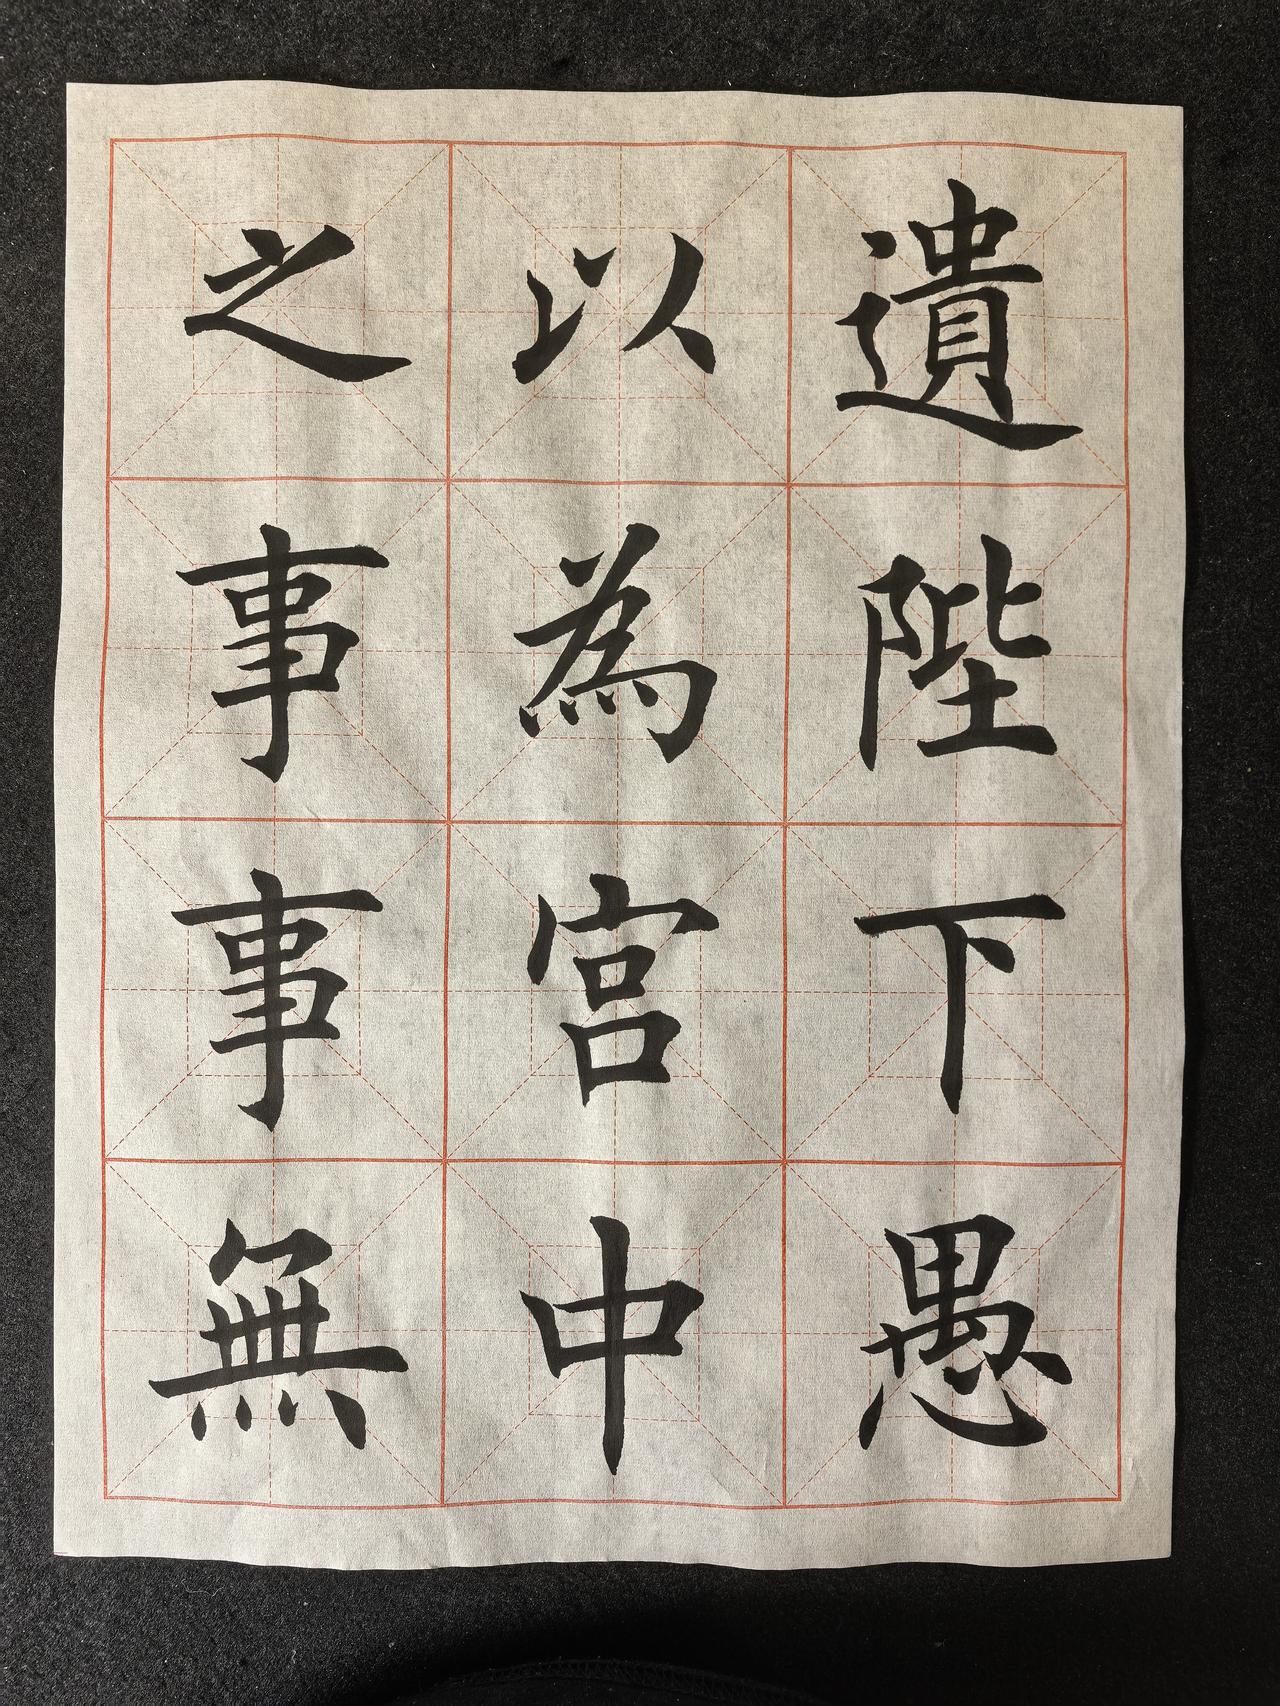 遺陛下愚
以為宮中
之事事無